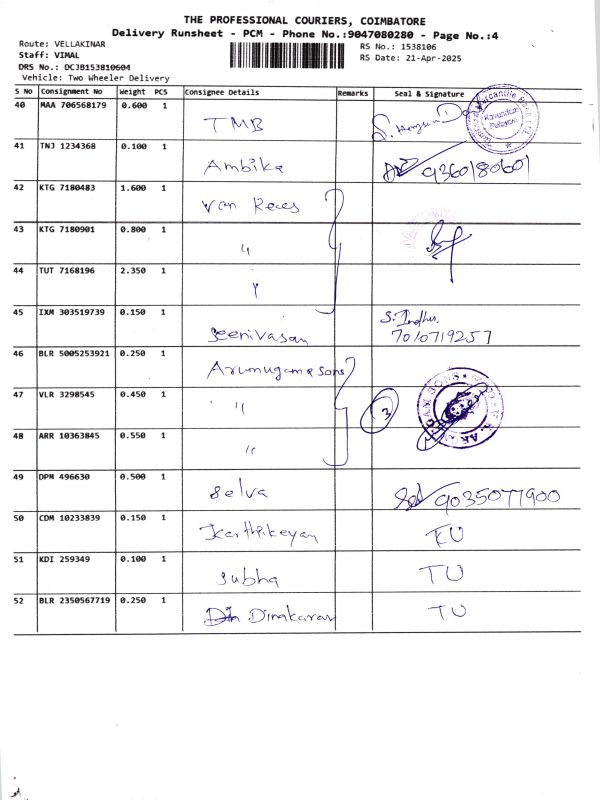 THE PROFESSIONAL COURIERS, COIMBATORE
Delivery Runsheet - PCM - Phone No.:9047080280 - Page No.:4
Route: VELLAKINAR
Staff: VIMAL
DRS No.: DCJB153810604
Vehicle: Two Wheeler Delivery
RS No.: 1538106
RS Date: 21-Apr-2025
S No Consignment No Weight PCS Consignee Details Remarks Seal & Signature
40 MAA 706568179 0.600 1 TMB
41 TNJ 1234368 0.100 1 Ambika 9360180601
42 KTG 7180483 1.600 1 Van
43 KTG 7180901 0.800 1 "
44 TUT 7168196 2.350 1 "
45 IXM 303519739 0.150 1 Seenivasan S. Indhu. 7010719257
46 BLR 5005253921 0.250 1 Arumugam & Sons
47 VLR 3298545 0.450 1 " 3
48 ARR 10363845 0.550 1 "
49 DPM 496630 0.500 1 Selva 9035077900
50 CDM 10233839 0.150 1 Karthikeyan TU
51 KDI 259349 0.100 1 Subha TU
52 BLR 2350567719 0.250 1 Dinakaran TU